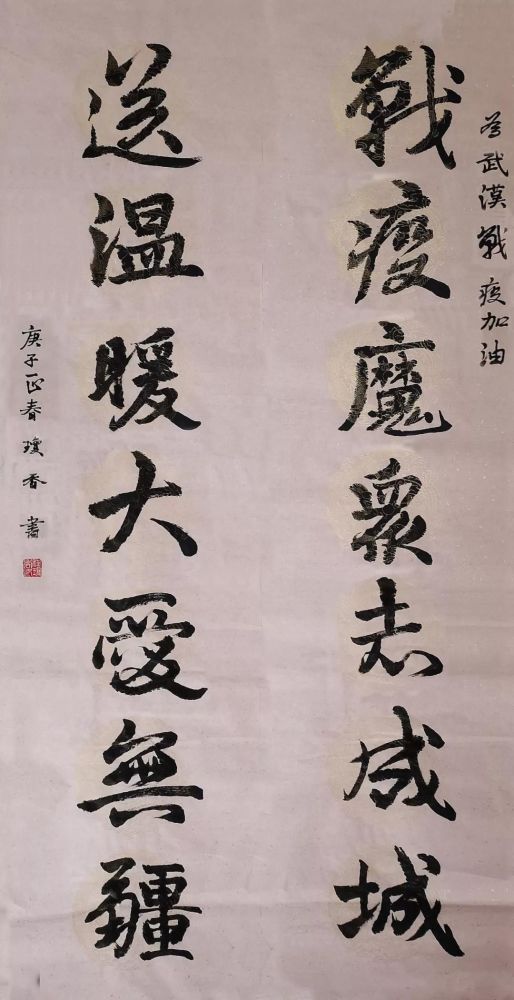 為武漢戰疫加油
戰疫魔衆志成城
送温暖大愛無疆
庚子正春瓊香書